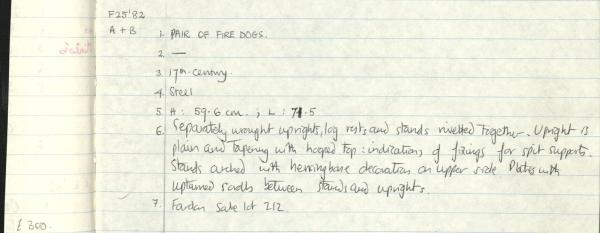 F25'82
A + B
1. PAIR OF FIRE DOGS.
2. —
3. 17th century.
4. Steel
5. H: 59.6 cm. ; L: 71.5
6. Separately wrought uprights, log rests and stands rivetted together. Upright is
plain and tapering with hooped top: indications of fixings for spit supports.
Stands arched with herringbone decoration on upper side. Plates with
upturned scrolls between stands and uprights.
7. Fardon Sale lot 212.
£ 300.